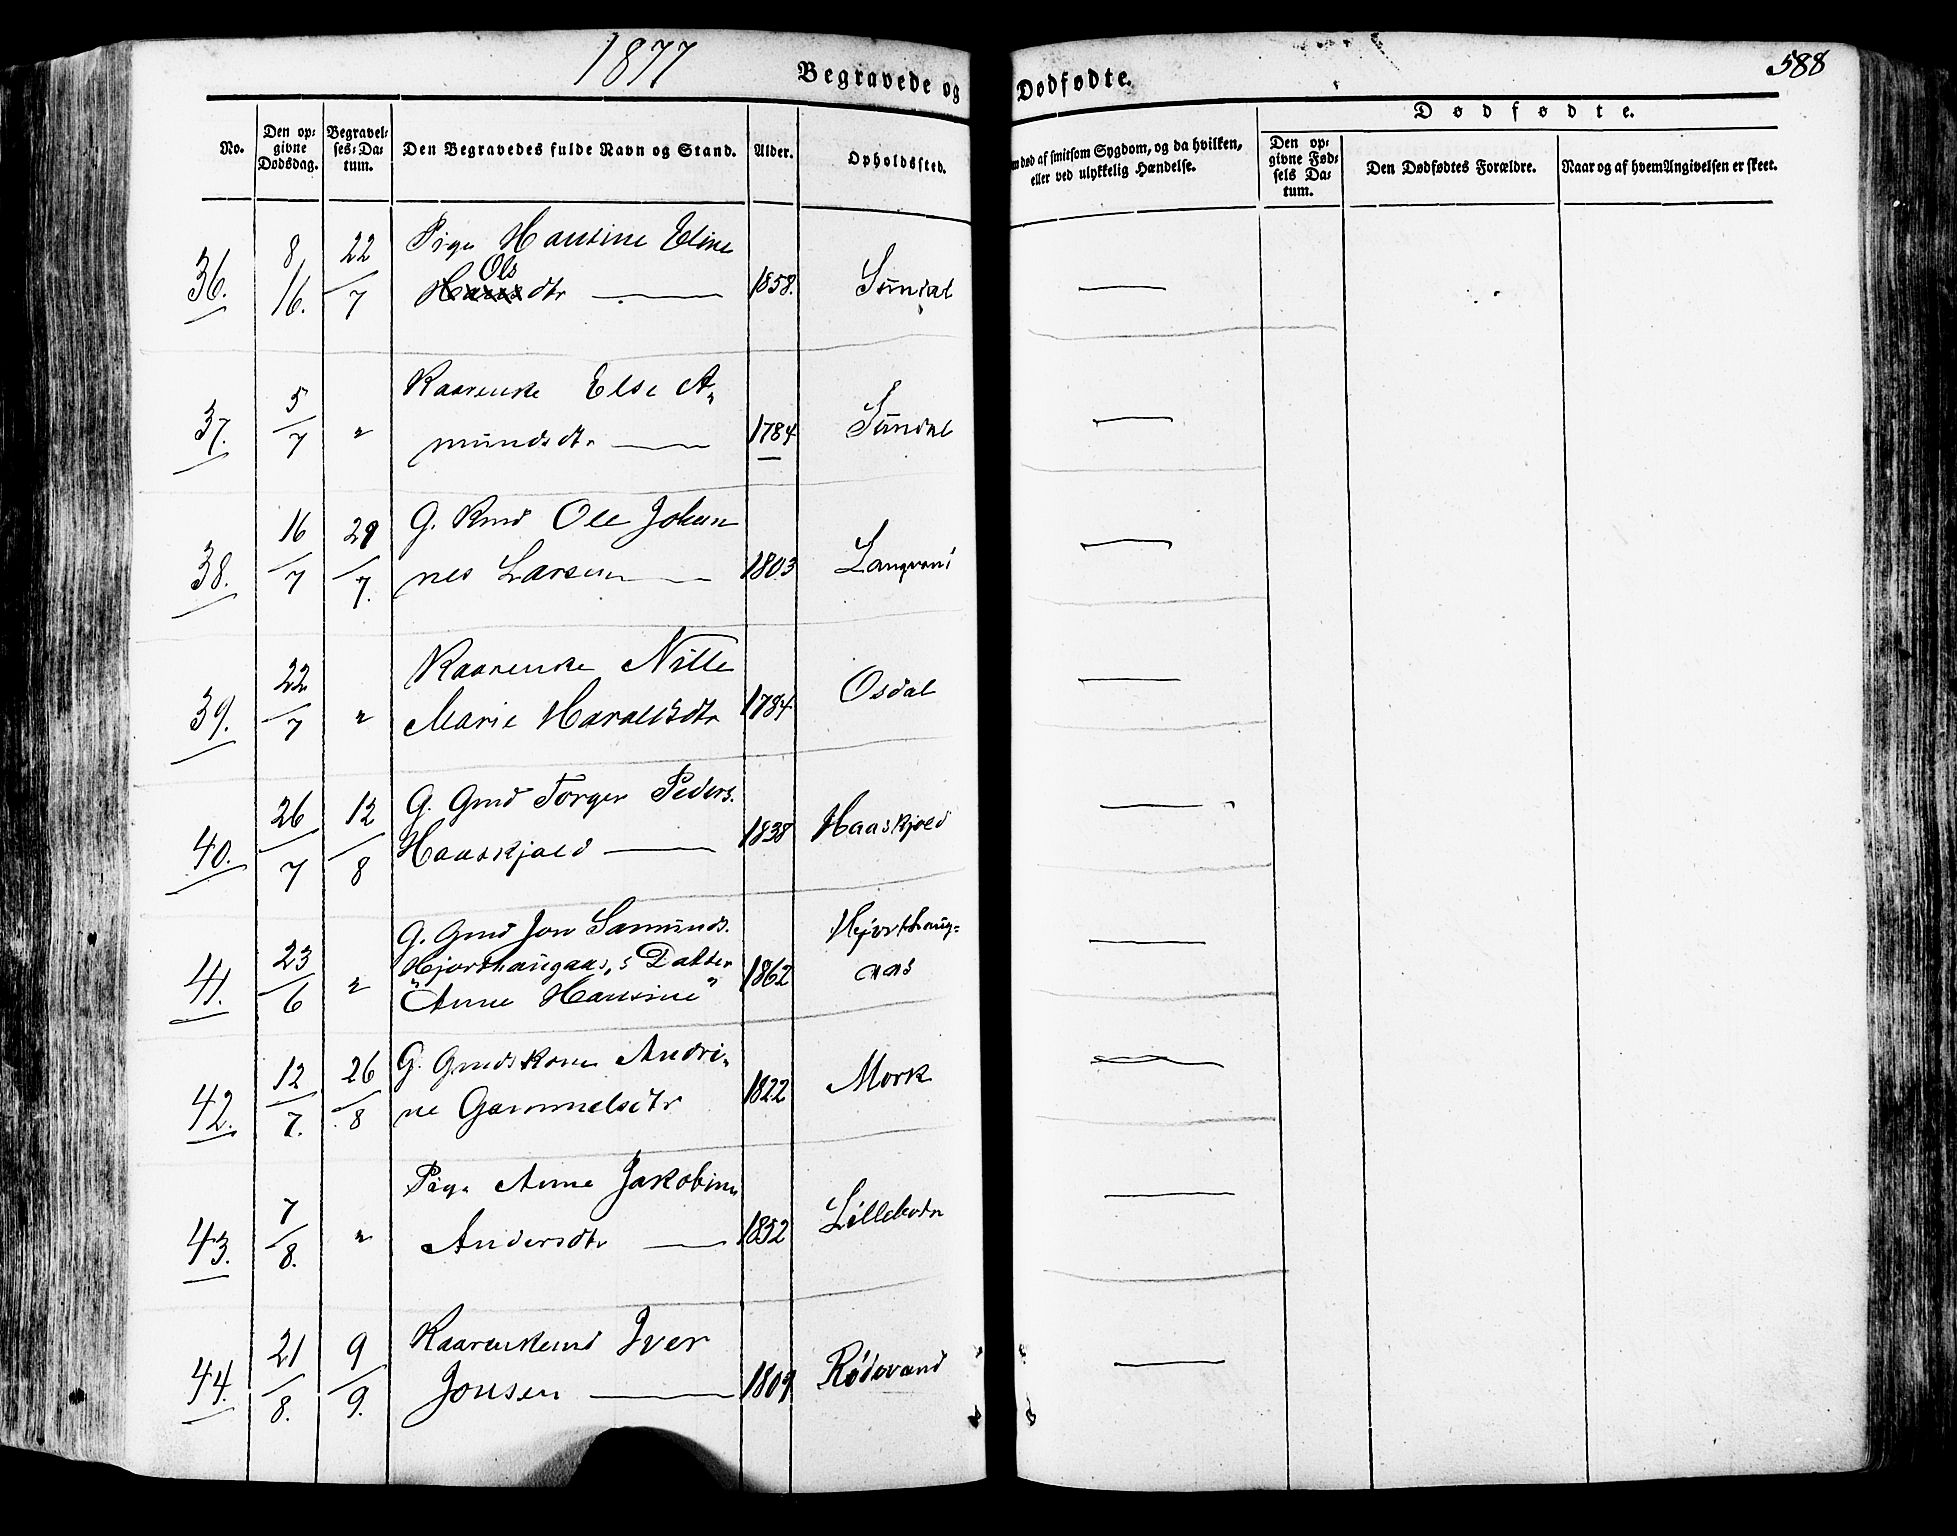 1877
Begravede og Dødfødte.
588
No.
Den op-
givne
Dødsdag.
Begravel-
ses-Da-
tum.
Den Begravedes fulde Navn og Stand.
Alder.
Opholdssted.
død af smitsom Sygdom, og da hvilken,
eller ved ulykkelig Hændelse.
Dødfødte.
Den op-
givne Fød-
sels Da-
tum.
Den Dødfødtes Forældre.
Naar og af hvem Angivelsen er skeet.
36. 8/16. 22/7 Pige Hansine Eline
Ols
dtr 1858. Sundal
37. 5/7 " Kaarenke Else A-
mundsdtr 1784 Sundal
38. 16/7 29/7. G. Kmd Ole Johan
nes Larsen 1803 Langvand
39. 22/7 " Kaarenke Nille
Marie Haraldsdtr 1784 Osdal
40. 26/7 12/8 G. Gmd Torger Peders.
Haaskjold 1838 Haaskjold
41. 23/6 " G. Gmd Jon Samunds.
Hjorthaugaas,s Datter
"Anne Hansine" 1862 Hjorthaug-
aas
42. 12/7. 26/8 G. Gmdskone Andri-
ne Gammelsdtr 1822 Mork
43. 7/8. " Pige Anne Jakobine
Andersdtr 1852 Lillebotn
44. 21/8. 9/9. Kaarenkemd Iver
Jonsen 1809 Rødvand